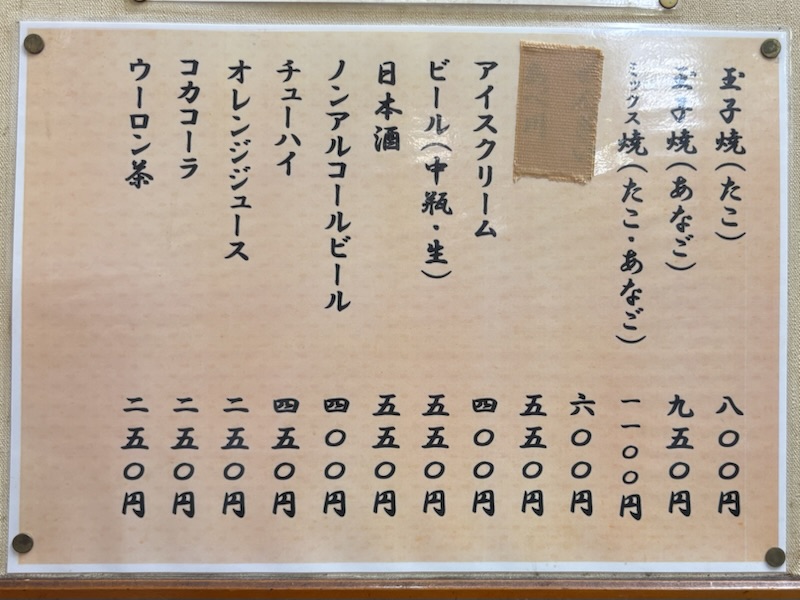 玉子焼(たこ) 八〇〇円
玉子焼(あなご) 九五〇円
ミックス焼(たこ・あなご) 一一〇〇円
六〇〇円
五五〇円
アイスクリーム 四〇〇円
ビール(中瓶・生) 五五〇円
日本酒 五五〇円
ノンアルコールビール 四〇〇円
チューハイ 四五〇円
オレンジジュース 二五〇円
コカコーラ 二五〇円
ウーロン茶 二五〇円